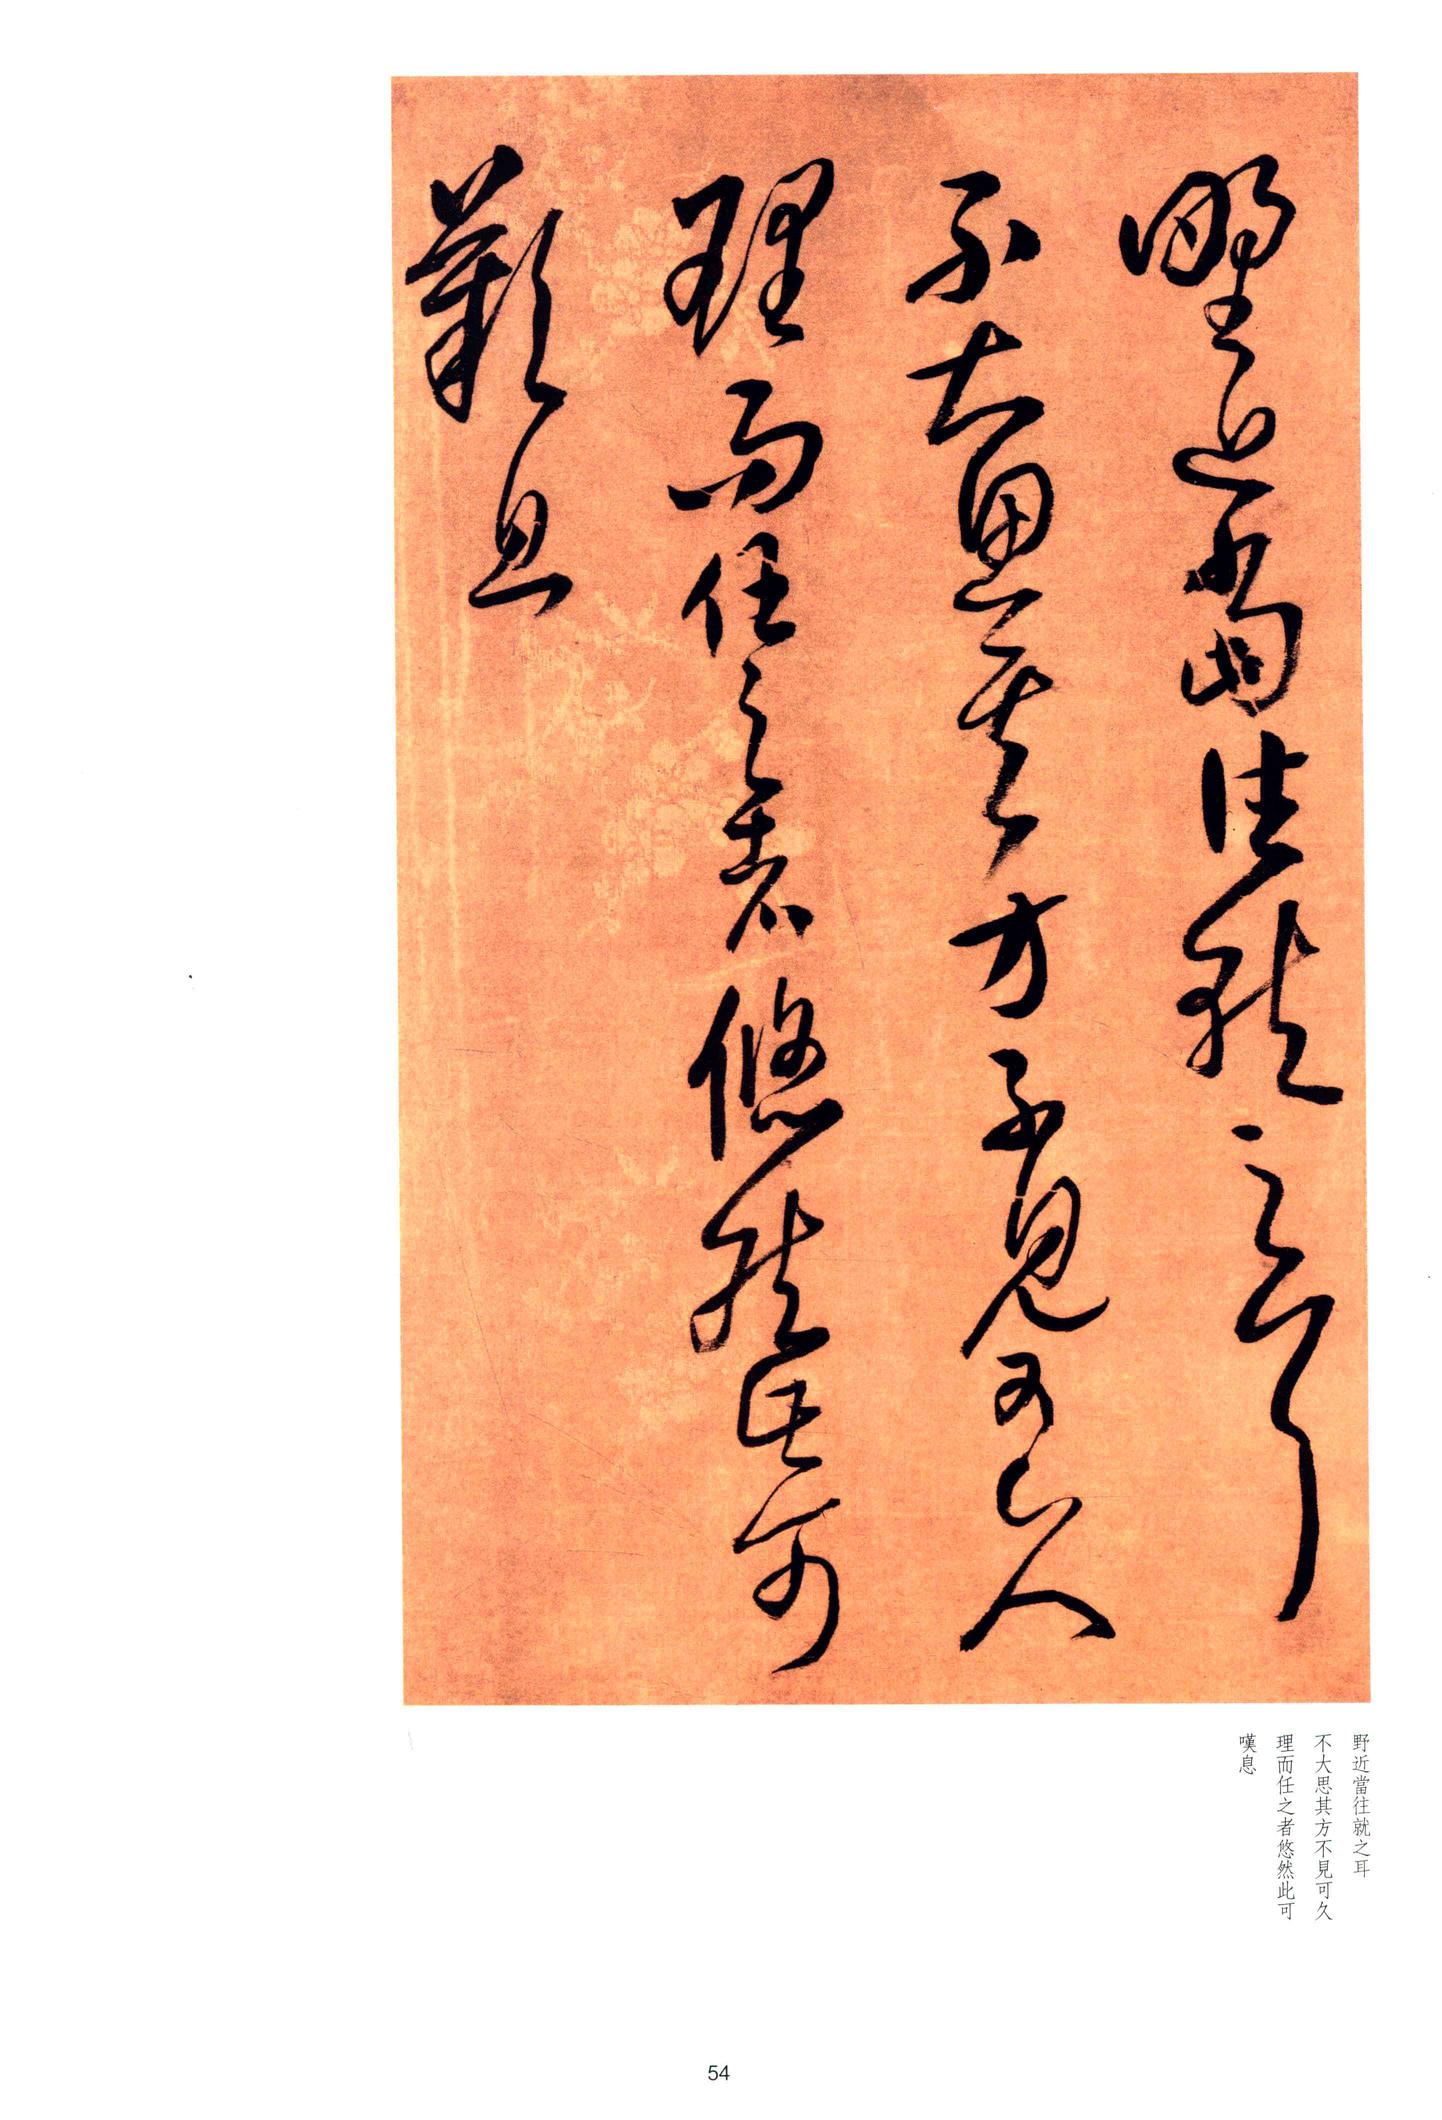 野近當往就之耳
不大思其方不見可久
理而任之者悠然此可
歎息
野近當往就之耳
不大思其方不見可久
理而任之者悠然此可
嘆息
54